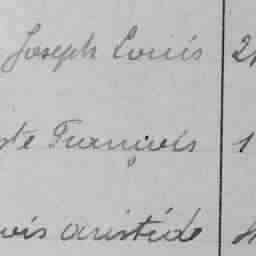 Joseph Louis 2
te François 1
uis aristide